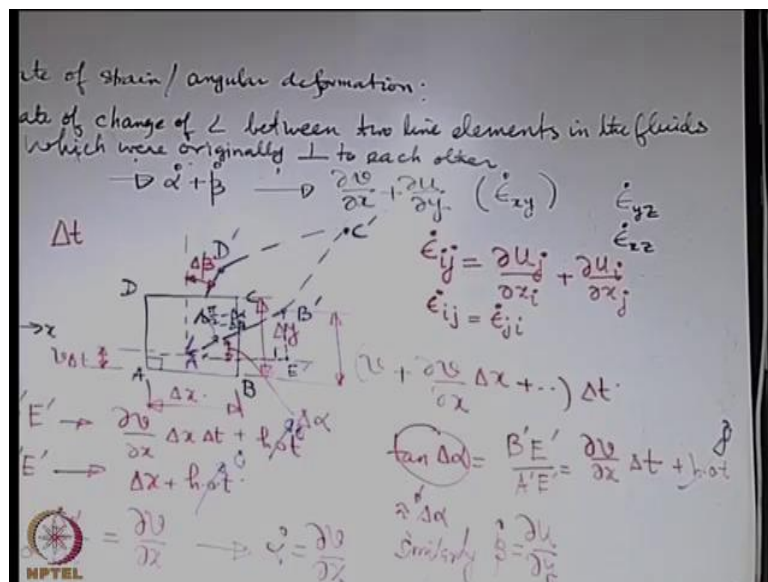 te of strain / angular deformation:
ate of change of ∠ between two line elements in the fluids
which were originally ⊥ to each other
→ α̇ + β̇ → ∂v/∂x + ∂u/∂y (ε̇xy) ε̇yz
ε̇xz
Δt
ε̇ij = ∂uj/∂xi + ∂ui/∂xj
ε̇ij = ε̇ji
D' C'
Δβ
D C B'
Δy
A' E'
→x
vΔt
A B
Δx
Δα
(v + ∂v/∂x Δx + ..) Δt
'E' → ∂v/∂x Δx Δt + h.o.t
'E' → Δx + h.o.t
tan Δα = B'E'/A'E' = ∂v/∂x Δt + h.o.t
≈ Δα
= ∂v/∂x → α̇ = ∂v/∂x
Similarly β̇ = ∂u/∂y
NPTEL